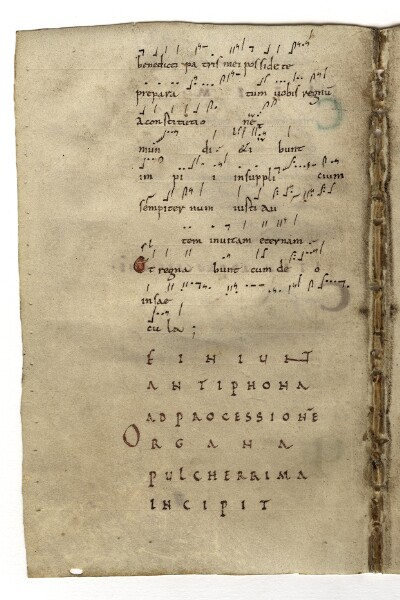 benedicti pa tris mei possidete
prepara tum uobis regnū
A constitutio ne
mun di & i bunt
im pi i insuppli cium
sempiter num iusti au
tem inuitam eternam
Et regna bunt cum de o
insae
cu la ;
FINIUNT
ANTIPHONA
AD PROCESSIONĒ
ORGANA
PULCHERRIMA
INCIPIT